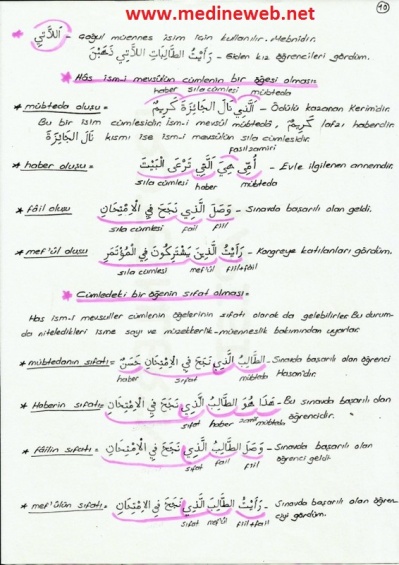 www.medineweb.net
40
* اَللَّاتِي - Çoğul müennes isim için kullanılır. Mebnidir.
رَأَيْتُ الطَّالِبَاتِ اللَّاتِي ذَهَبْنَ - Giden kız öğrencileri gördüm.
* Has ism-i mevsûlün cümlenin bir öğesi olması=
haber sıla cümlesi mübteda
* mübteda oluşu = اَلَّذِي نَالَ الْجَائِزَةَ كَرِيمٌ - Ödülü kazanan Kerimdir.
Bu bir isim cümlesidir. İsm-i mevsûl mübteda, كَرِيمٌ lafzı haberdir.
نَالَ الْجَائِزَةَ kısmı ise ism-i mevsûlün sıla cümlesidir.
fasıl zamiri
* haber oluşu = أُمِّي هِيَ الَّتِي تَرْعَى الْبَيْتَ - Evle ilgilenen annemdir.
sıla cümlesi haber mübteda
* fâil oluşu = وَصَلَ الَّذِي نَجَحَ فِي الْاِمْتِحَانِ - Sınavda başarılı olan geldi.
sıla cümlesi fail fiil
* mef'ûl oluşu = رَأَيْتُ الَّذِينَ يَشْتَرِكُونَ فِي الْمُؤْتَمَرِ - Kongreye katılanları gördüm.
sıla cümlesi mef'ûl fiil+fâil
* Cümledeki bir öğenin sıfat olması=
Has ism-i mevsuller cümlenin öğelerinin sıfatı olarak da gelebilirler. Bu durum-
da niteledikleri isme sayı ve müzekkerlik-müenneslik bakımından uyarlar.
* mübtedanın sıfatı = الطَّالِبُ الَّذِي نَجَحَ فِي الْاِمْتِحَانِ حَسَنٌ - Sınavda başarılı olan öğrenci
Hasan'dır.
haber sıfat mübteda
* Haberin sıfatı = هَذَا هُوَ الطَّالِبُ الَّذِي نَجَحَ فِي الْاِمْتِحَانِ - Bu sınavda başarılı olan
öğrencidir.
sıfat haber mübteda
* fâilin sıfatı = وَصَلَ الطَّالِبُ الَّذِي نَجَحَ فِي الْاِمْتِحَانِ - Sınavda başarılı olan
öğrenci geldi.
sıfat fail fiil
* mef'ûlün sıfatı = رَأَيْتُ الطَّالِبَ الَّذِي نَجَحَ فِي الْاِمْتِحَانِ - Sınavda başarılı olan öğren-
ciyi gördüm.
sıfat mef'ûl fiil+fail